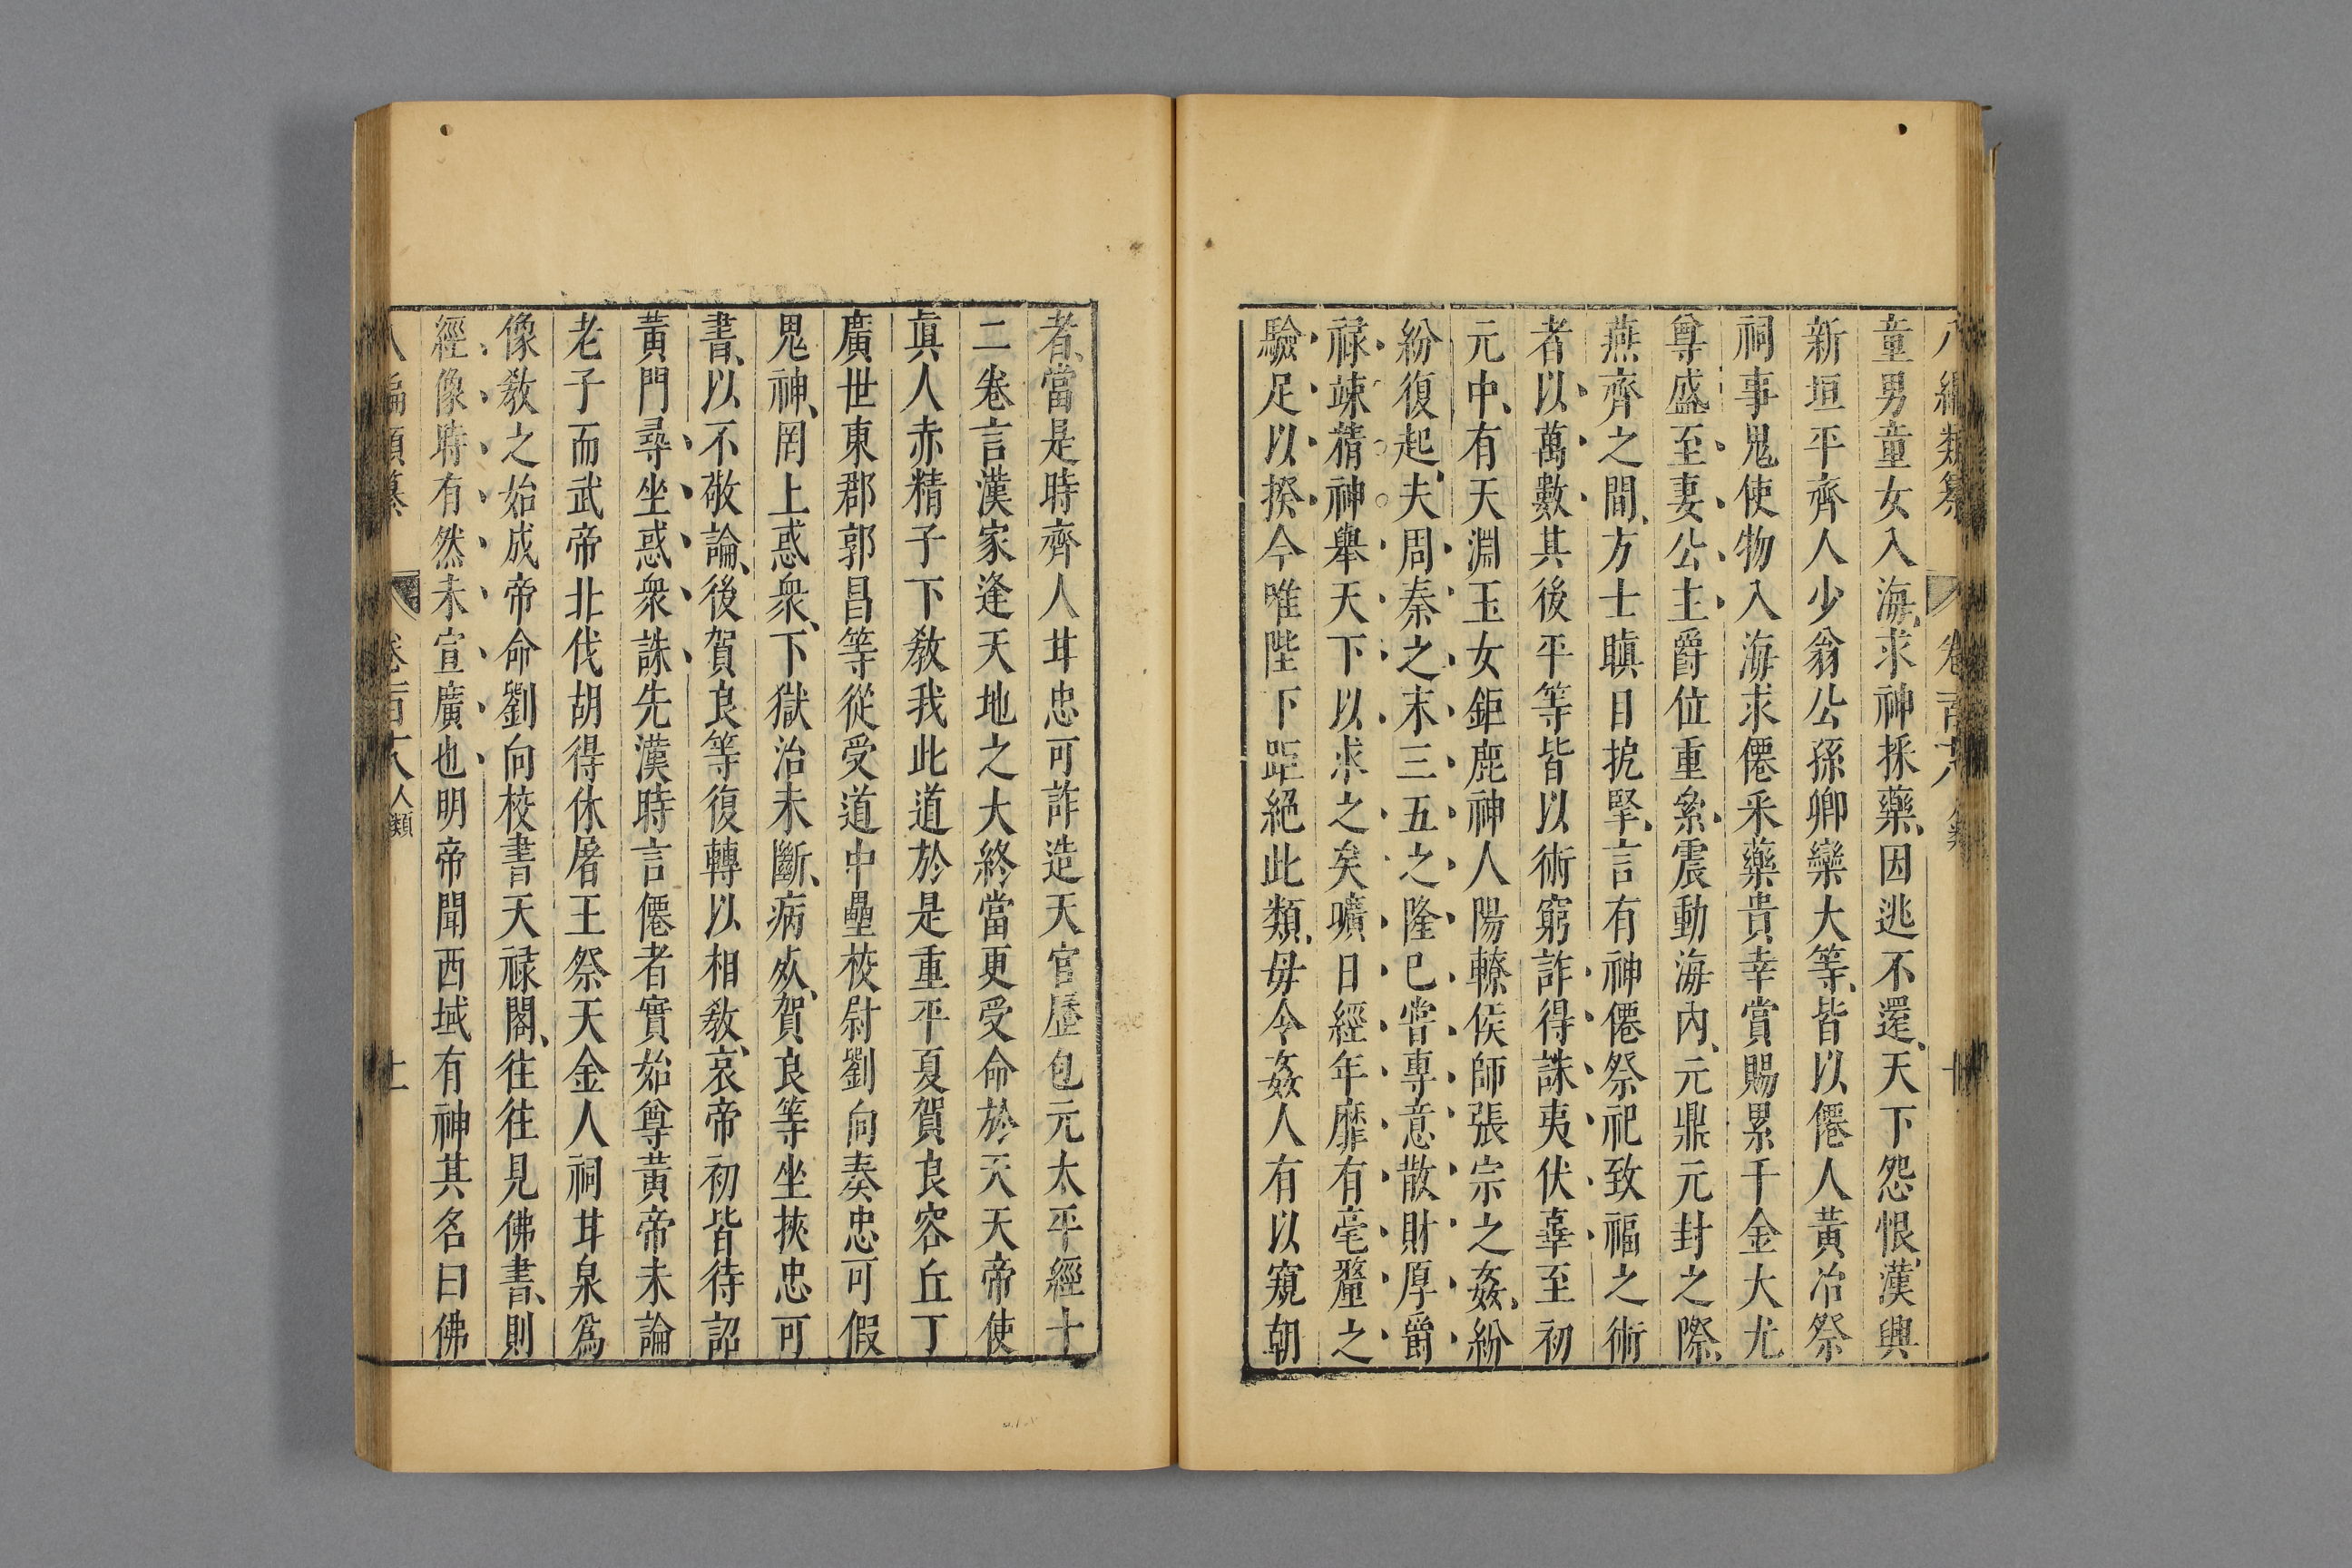 童男童女入海求神採藥因逃不還天下怨恨漢興
新垣平齊人少翁公孫卿欒大等皆以僊人黃冶祭
祠事鬼使物入海求僊釆藥貴幸賞賜累千金大尤
尊盛至妻公主爵位重絫震動海內元鼎元封之際
燕齊之間方士瞋目扼掔言有神僊祭祀致福之術
者以萬數其後平等皆以術窮詐得誅夷伏辜至初
元中有天淵玉女鉅鹿神人陽轑侯師張宗之姦紛
紛復起夫周秦之末三五之隆已嘗專意散財厚爵
祿竦精神舉天下以求之矣曠日經年靡有毫釐之
驗足以揆今唯陛下距絕此類毋令姦人有以窺朝
者當是時齊人甘忠可詐造天官曆包元太平經十
二卷言漢家逢天地之大終當更受命於天天帝使
眞人赤精子下敎我此道於是重平夏賀良容丘丁
廣世東郡郭昌等從受道中壘校尉劉向奏忠可假
鬼神罔上惑衆下獄治未斷病死賀良等坐挾忠可
書以不敬論後賀良等復轉以相敎哀帝初皆待詔
黃門尋坐惑衆誅先漢時言僊者實始尊黃帝未論
老子而武帝北伐胡得休屠王祭天金人祠甘泉爲
像敎之始成帝命劉向校書天祿閣往往見佛書則
經像時有然未宣廣也明帝聞西域有神其名曰佛
八編類纂 卷百六八 人類 十一